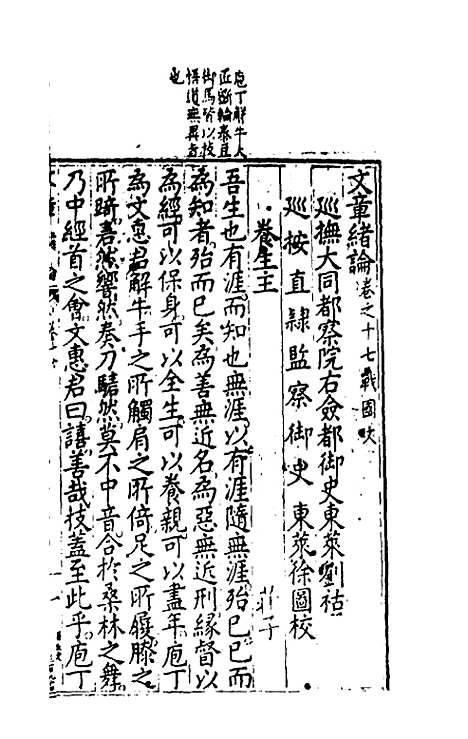 庖丁解牛大
匠斲輪泰豆
御馬皆以技
悟道無異者
也
文章緒論卷之十七戰國文
巡撫大同都察院右僉都御史東萊劉祜
巡按直隸監察御史東萊徐圖校
養生主
莊子
吾生也有涯而知也無涯以有涯隨無涯殆已已而
為知者殆而已矣為善無近名為惡無近刑緣督以
為經可以保身可以全生可以養親可以盡年庖丁
為文惠君解牛手之所觸肩之所倚足之所履膝之
所踦砉然嚮然奏刀騞然莫不中音合於桑林之舞
乃中經首之會文惠君曰譆善哉技蓋至此乎庖丁